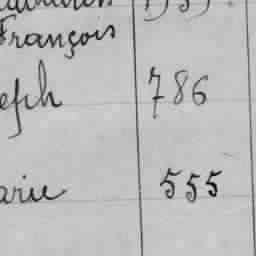 François
eph 786
arie 555